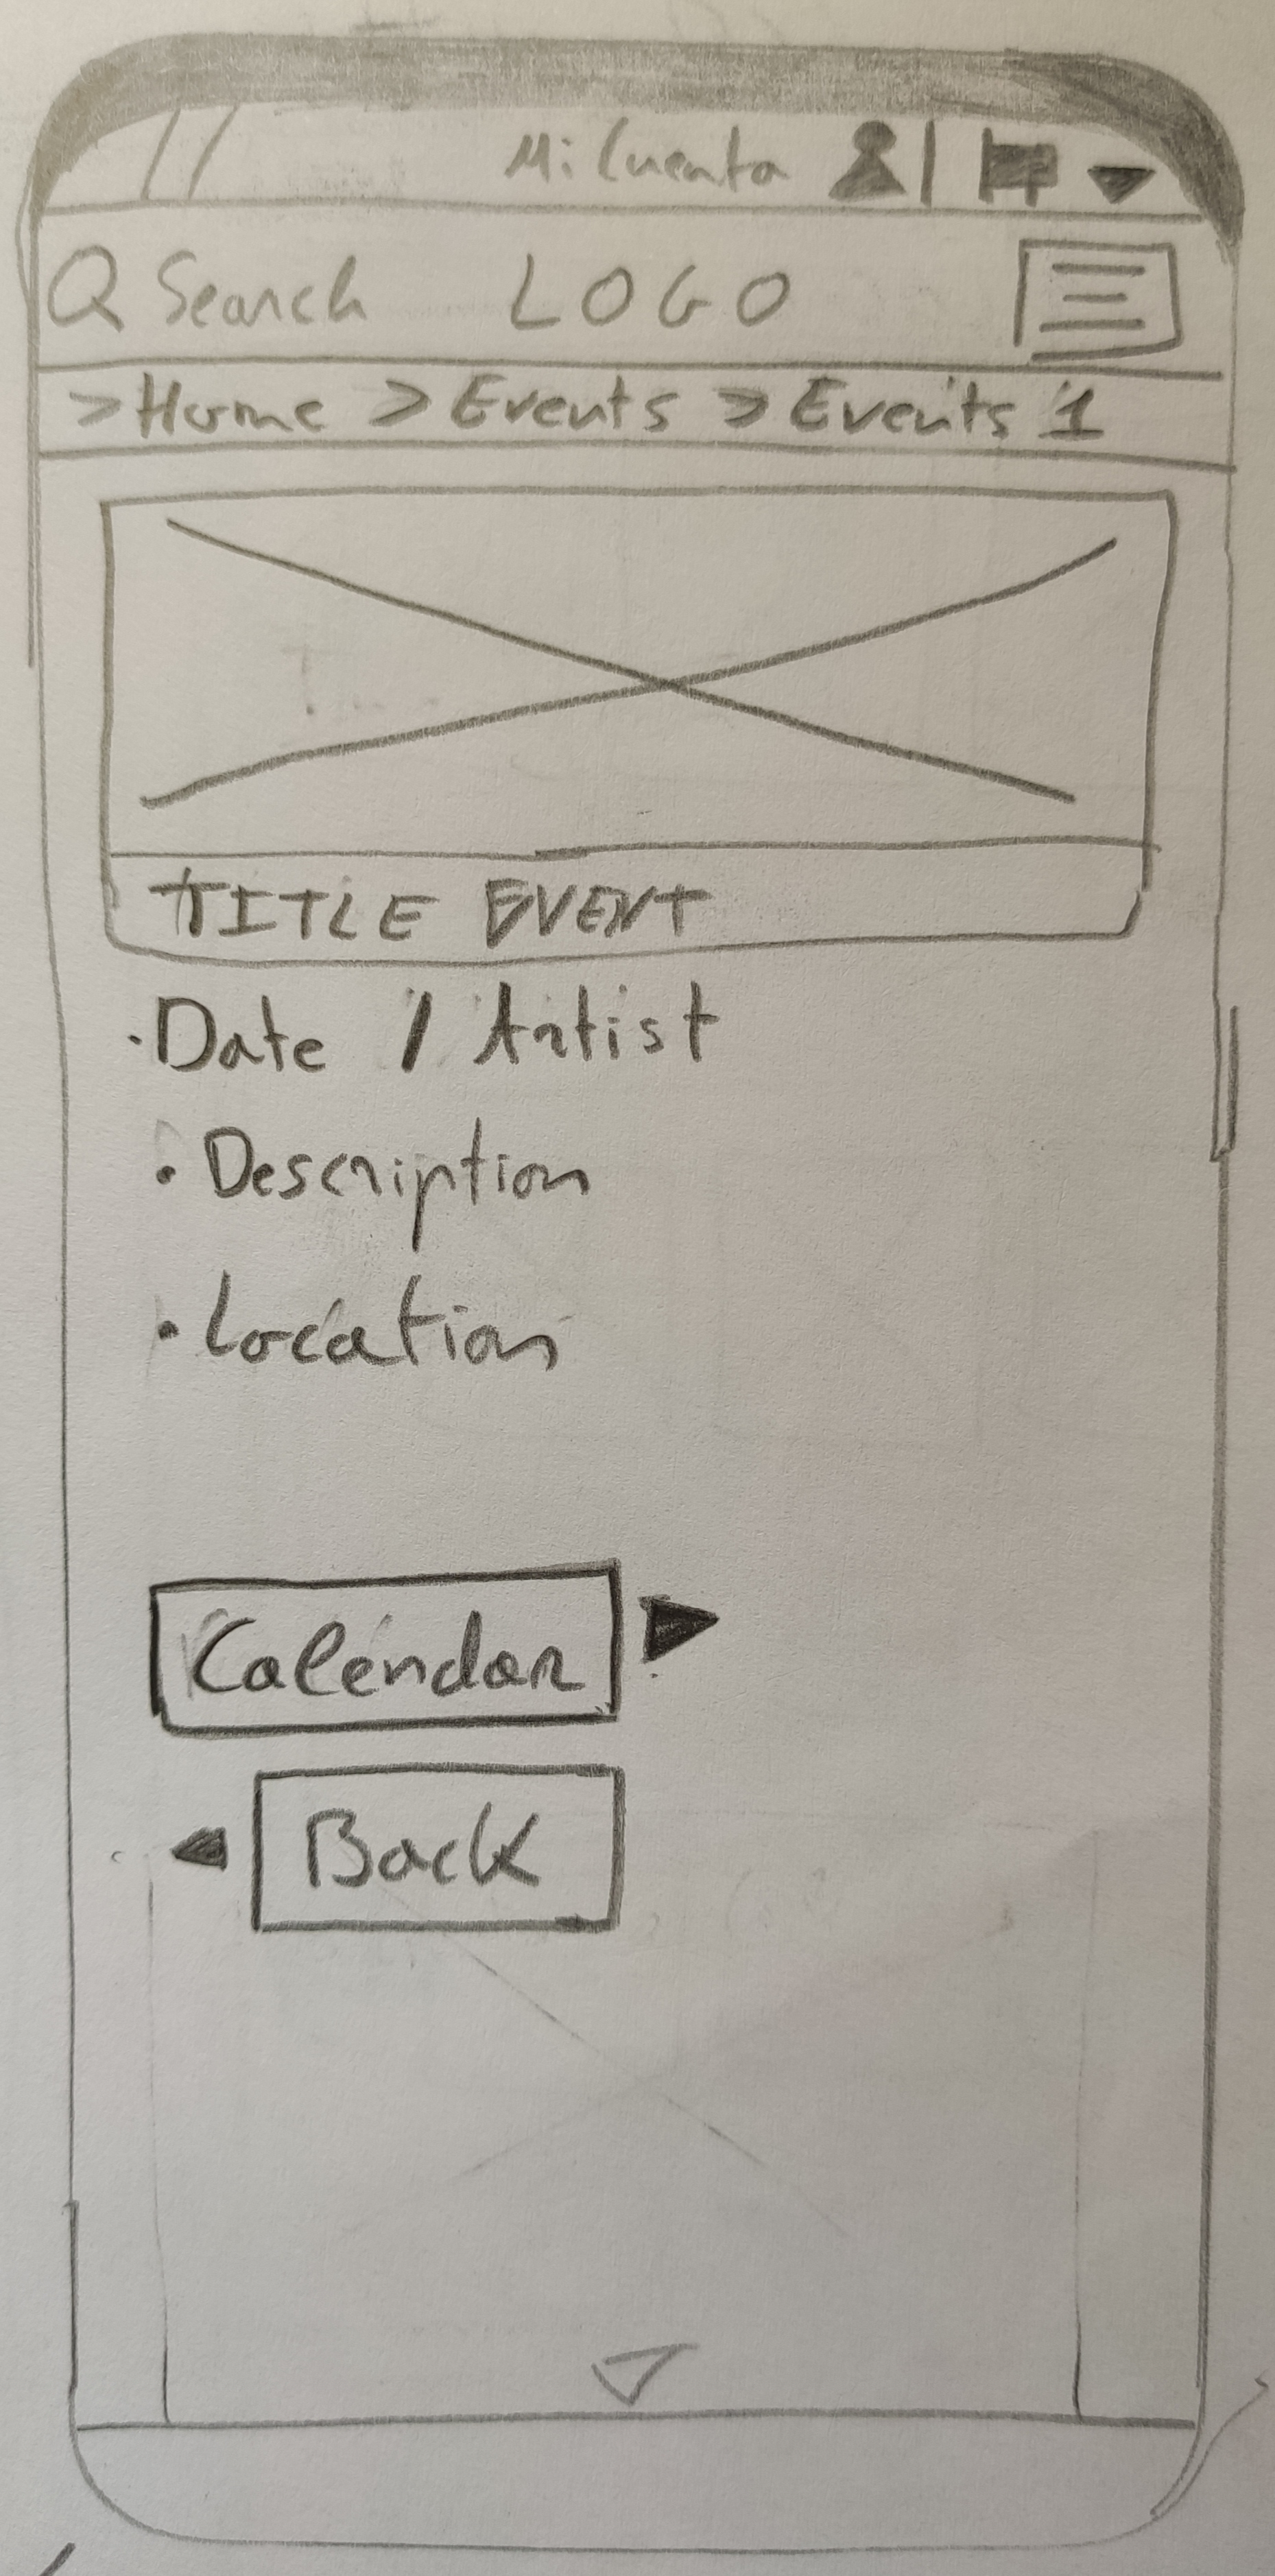 Mi Cuenta
Search LOGO
>Home >Events >Events 1
TITLE EVENT
·Date / Artist
·Description
·Location
Calendar
Back